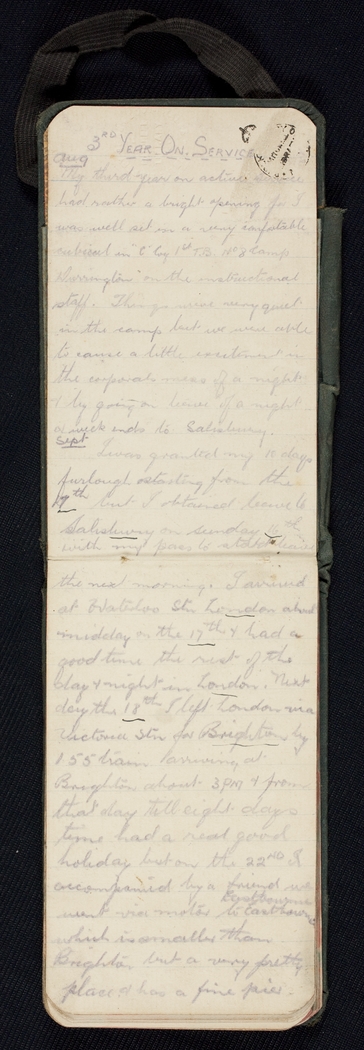 3RD YEAR ON SERVICE
Aug
My third year on active service
had rather a bright opening for I
was well set in a very comfortable
cubicul in "C" Coy 1st T.B. No 8 Camp
Durrington on the instructional
staff. Things were very quiet
in the camp but we were able
to cause a little excitement in
the corporals mess of a night
& by going on leave of a night
a week ends to Salisbury.
Sept
I was granted my 10 days
furlough starting from the
17th but I obtained leave to
Salisbury on Sunday 16th
with my pass to start leave
the next morning. I arrived
at Waterloo Stn London about
midday on the 17th & had a
good time the rest of the
day & night in London. Next
day the 18th I left London via
Victoria Stn for Brighton by
1 55 train arriving at
Brighton about 3 PM & from
that day till eight days
time had a real good
holiday but on the 22ND I
accompanied by a friend we
Eastbourne
went via motor to Eastbourne
which is smaller than
Brighton but a very pretty
place & has a fine pier.